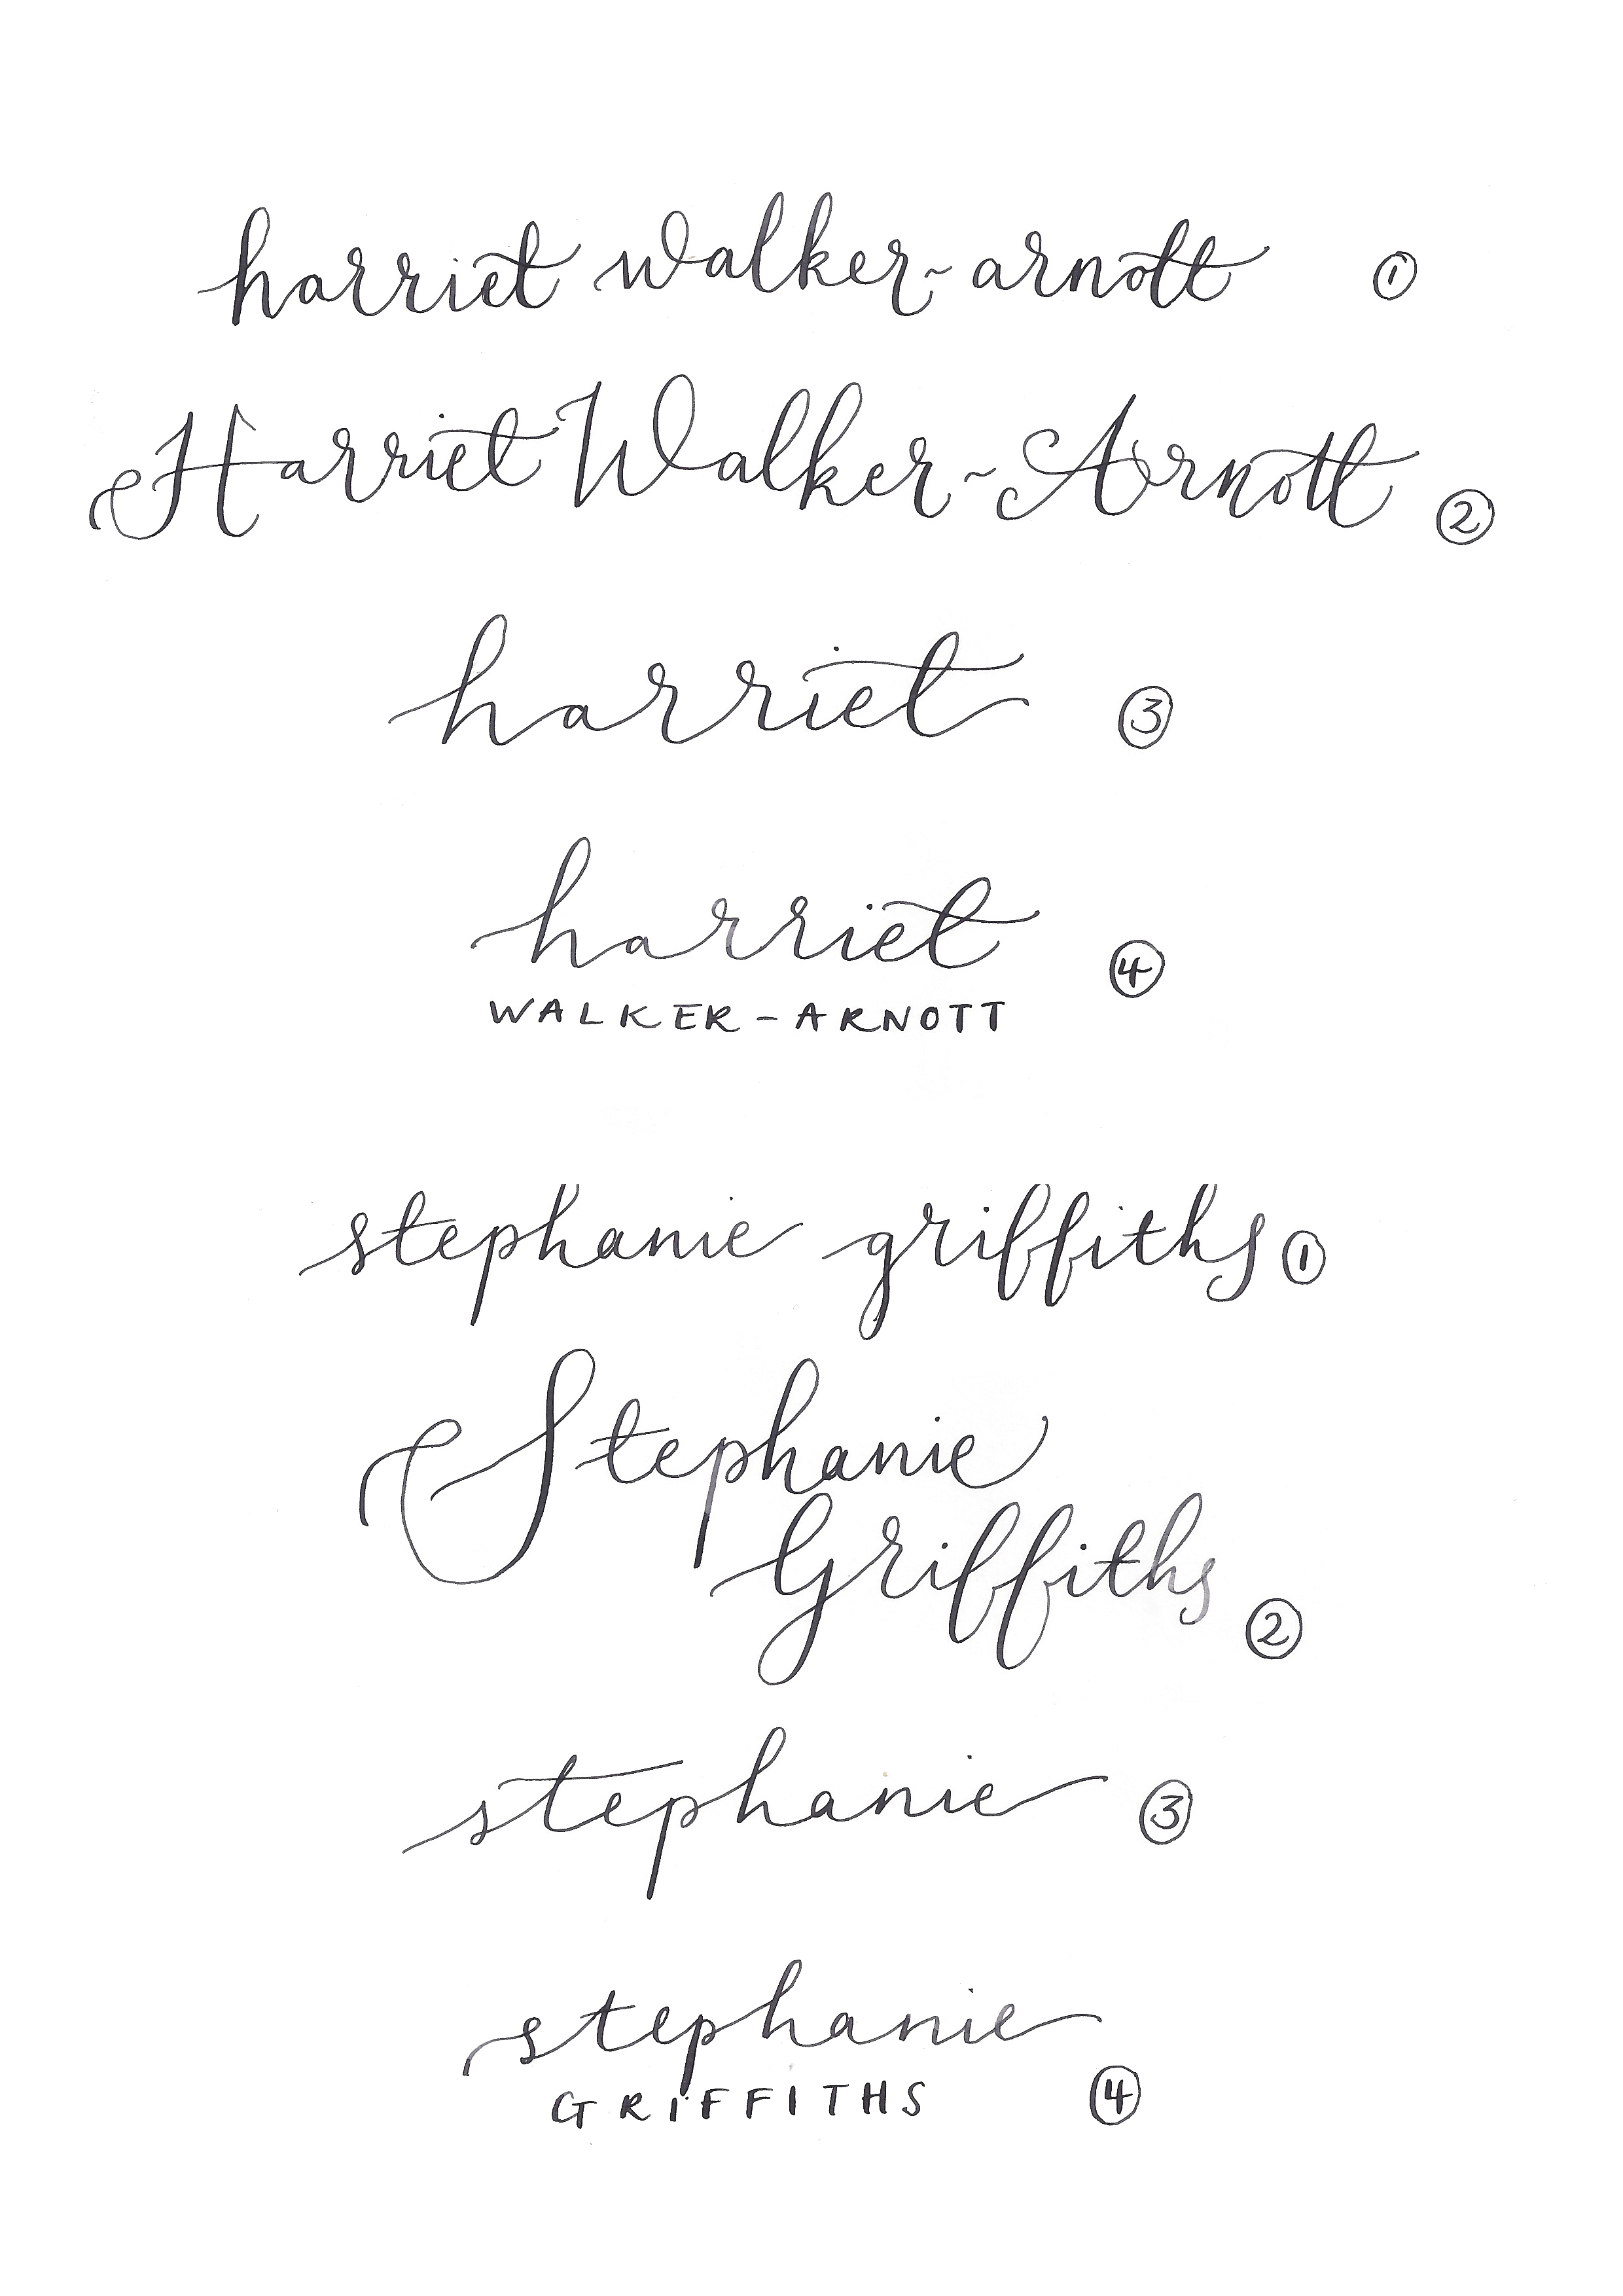 harriet walker-arnott ①
Harriet Walker-Arnott ②
harriet ③
harriet
WALKER-ARNOTT ④
stephanie griffiths ①
Stephanie
Griffiths ②
stephanie ③
stephanie
GRIFFITHS ④